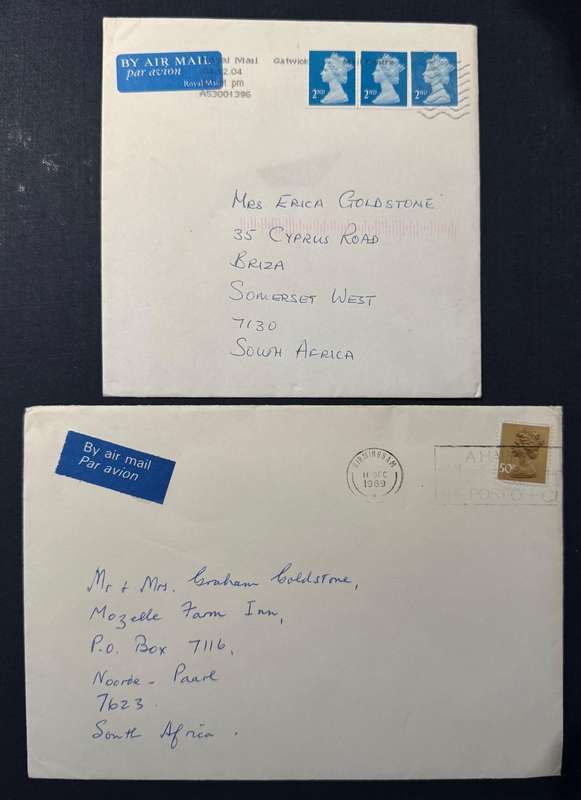 BY AIR MAIL
par avion
Royal Mail
Royal Mail Gatwick Mail Centre
12.04
pm
A53001396
2ND 2ND 2ND
Mrs Erica Goldstone
35 Cyprus Road
Briza
Somerset West
7130
South Africa
By air mail
Par avion
BIRMINGHAM
11 DEC
1989
A HA
POST OFFICE
50P
Mr & Mrs. Graham Goldstone,
Mozelle Farm Inn,
P.O. Box 7116,
Noorde - Paarl
7623.
South Africa.